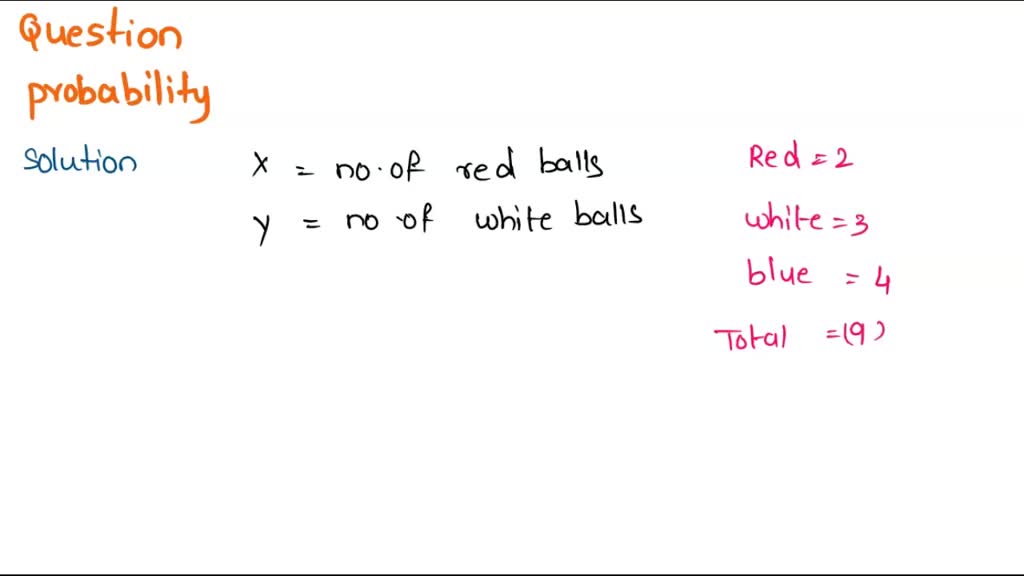 Question
probability
Solution
X = no. of red balls
y = no of white balls
Red = 2
white = 3
blue = 4
Total = (9)